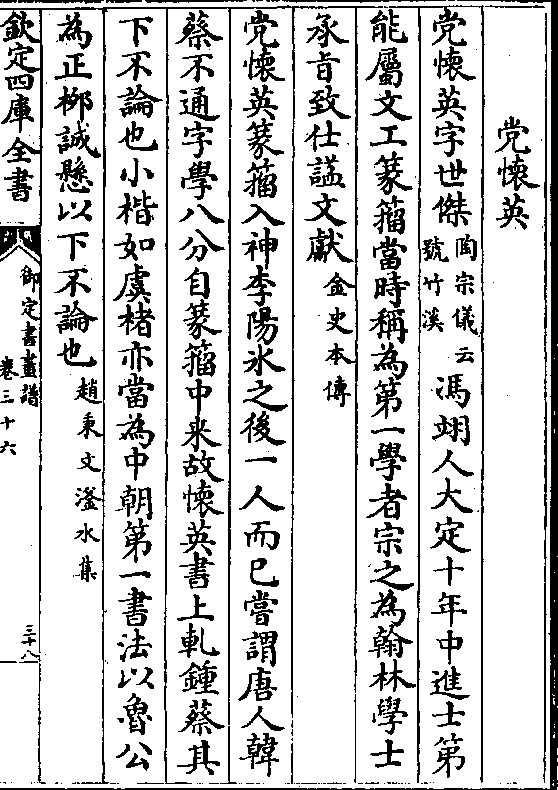 党懷英
党懷英字世傑陶宗儀云號竹溪馮翊人大定十年中進士第
能屬文工篆籀當時稱為第一學者宗之為翰林學士
承旨致仕諡文獻金史本傳
党懷英篆籀入神李陽冰之後一人而已嘗謂唐人韓
蔡不通字學八分自篆籀中来故懷英書上軋鍾蔡其
下不論也小楷如虞禇亦當為中朝第一書法以魯公
為正栁誠懸以下不論也趙秉文滏水集
欽定四庫全書
御定書畫譜
卷三十六
三十八